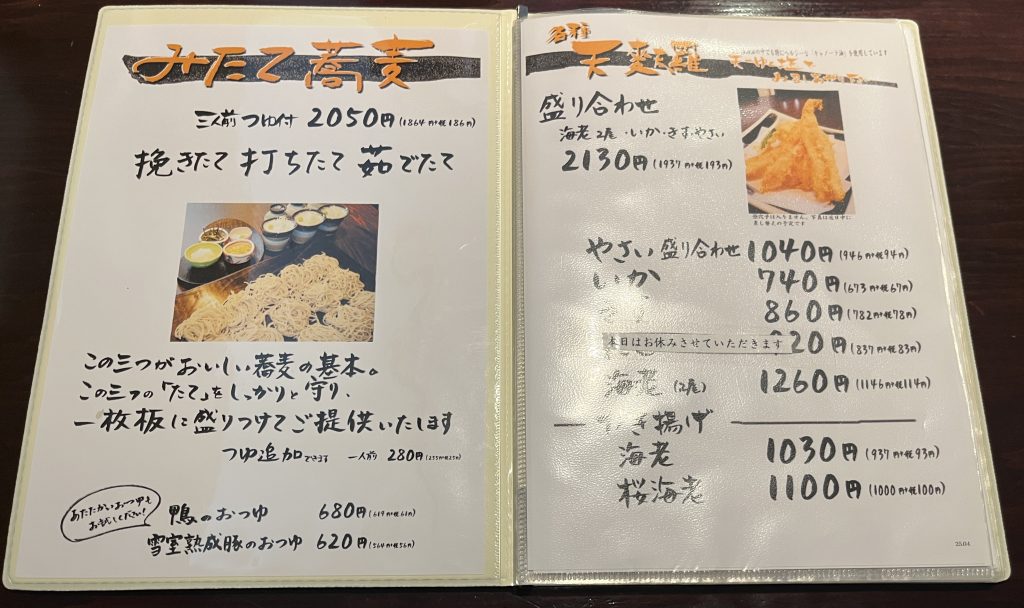 みたて蕎麦
三人前 つゆ付 2050円(1864円+税186円)
挽きたて 打ちたて 茹でたて
この三つがおいしい蕎麦の基本。
この三つの「たて」をしっかりと守り、
一枚板に盛りつけてご提供いたします
つゆ追加できます 一人前 280円(255円+税25円)
あたたかいおつゆも
お試しください!
鴨のおつゆ 680円(619円+税61円)
雪室熟成豚のおつゆ 620円(564円+税56円)
各種
天麩羅
盛り合わせ
海老2尾・いか・きす・やさい
2130円(1937円+税193円)
やさい盛り合わせ 1040円(946円+税94円)
いか 740円(673円+税67円)
860円(782円+税78円)
本日はお休みさせていただきます 20円(837円+税83円)
海老(2尾) 1260円(1146円+税114円)
き揚げ
海老 1030円(937円+税93円)
桜海老 1100円(1000円+税100円)
25.04